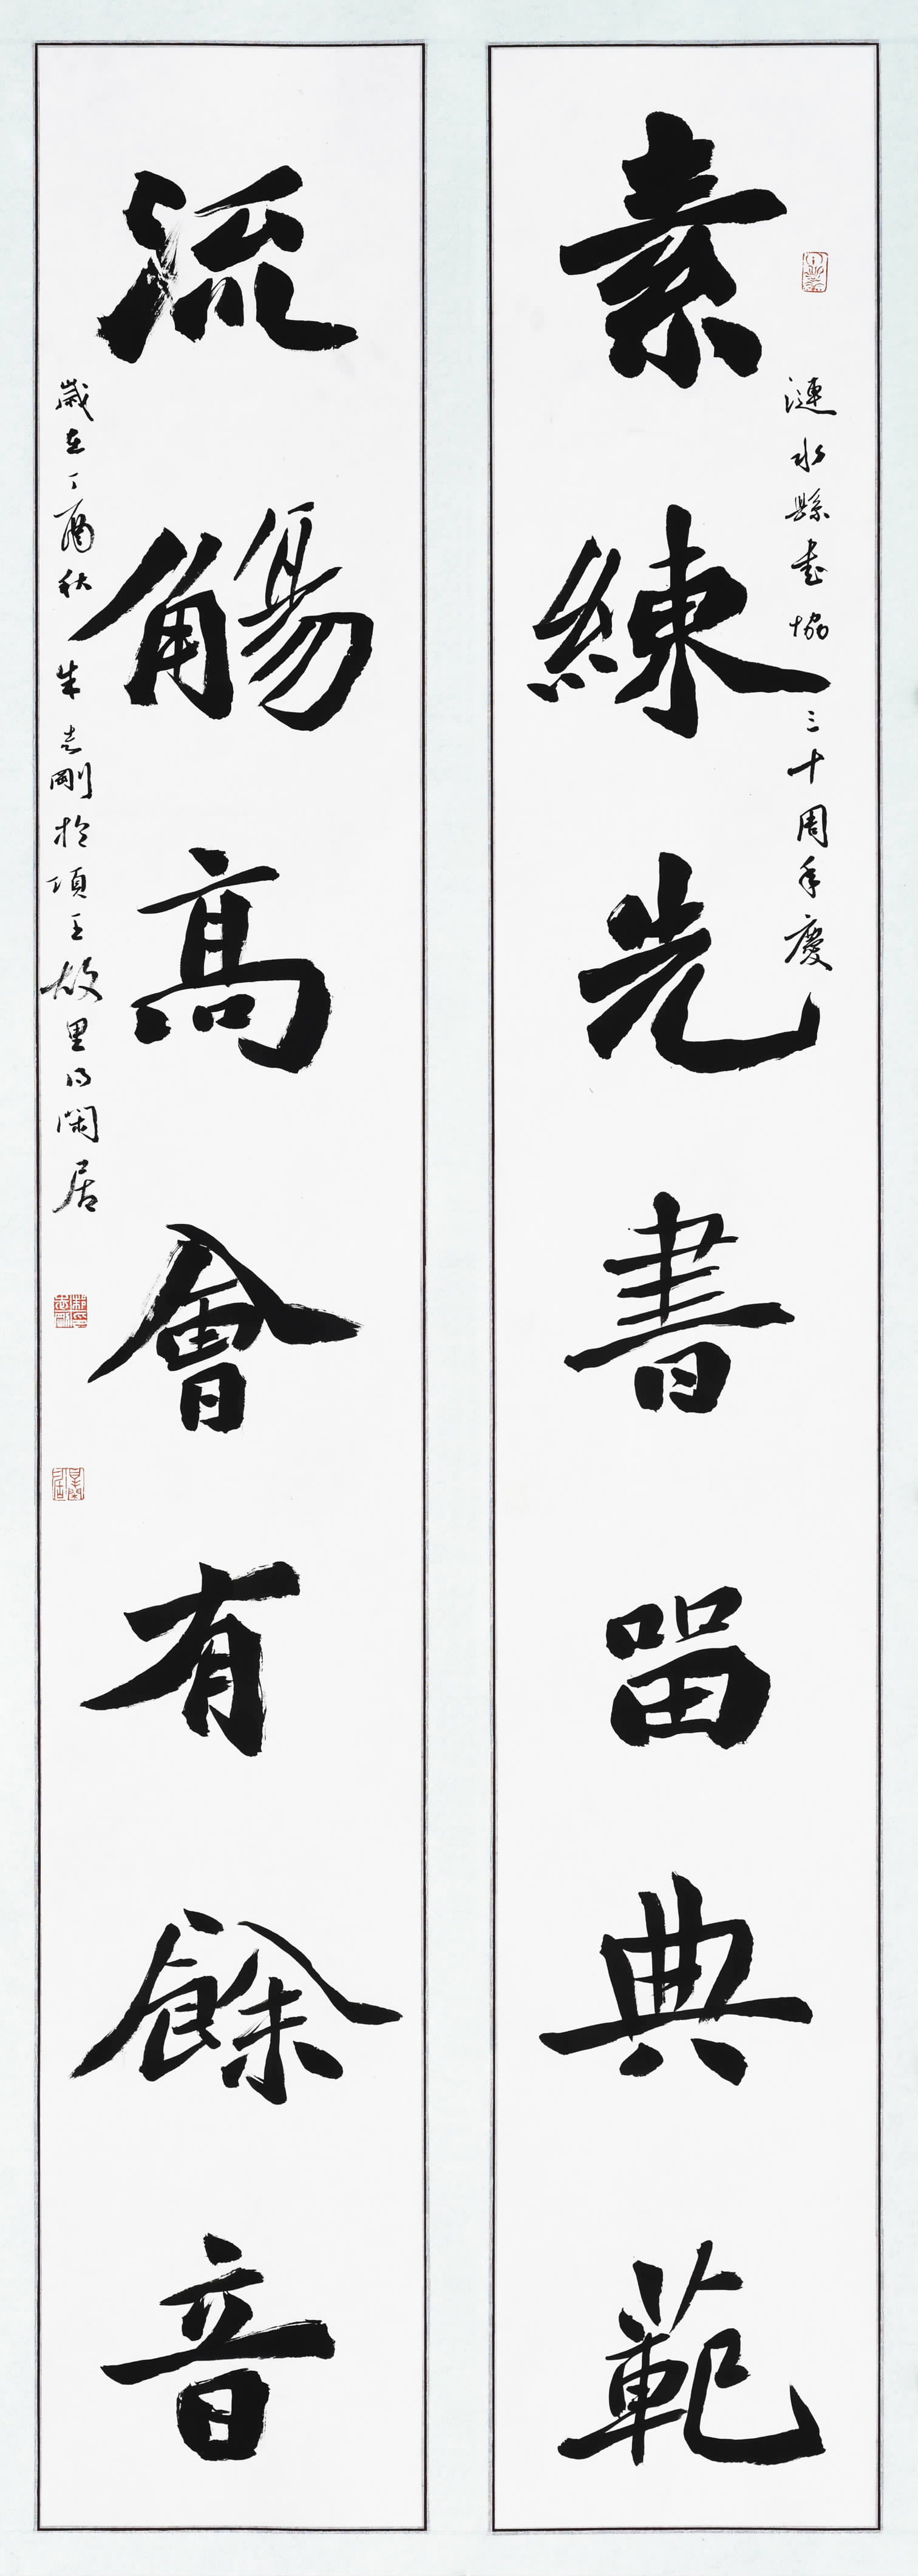 素練先書留典範
漣水縣書協三十周年慶
流觴高會有餘音
歲在丁酉秋朱志剛於項王故里得閑居